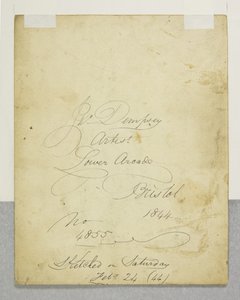 Jno Dempsey
Artist
Lower Arcade
Bristol
1844
No
4855
Sketched on Saturday
Feby 24 (44)